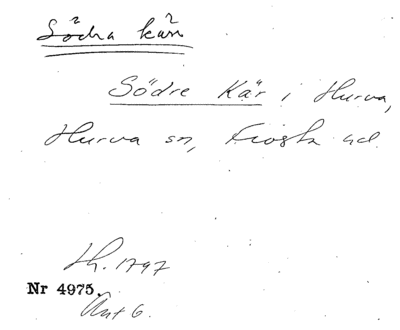 Södra kärr
Södre Kär i Hurva,
Hurva sn, Frosta hd
Lh. 1797
Nr 4975.
Akt 6.